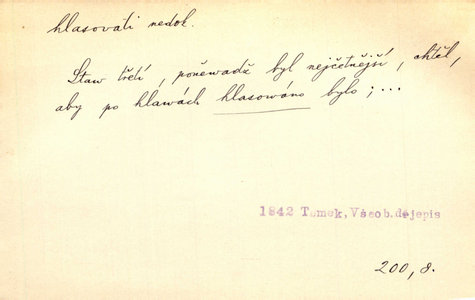 hlasovati nedok.
Staw třetí, poněwadž byl nejčetnější, chtěl,
aby po hlawách hlasowáno bylo; ...
1842 Tomek, Všeob. dějepis
200, 8.